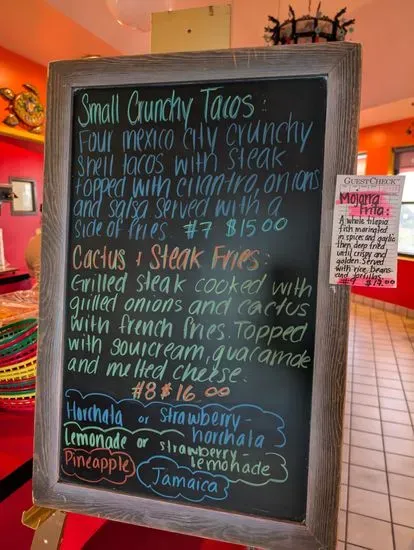 Small Crunchy Tacos:
Four mexico city crunchy
shell tacos with steak
topped with cilantro, onions
and salsa served with a
side of fries #7 $15.00
Cactus & Steak Fries:
Grilled steak cooked with
grilled onions and cactus
with french fries. Topped
with sourcream, guacamole
and melted cheese.
#8 $16.00
Horchata or strawberry-
horchata
Lemonade or strawberry-
lemonade
Pineapple
Jamaica
GUEST CHECK
Mojarra
Frita:
A whole tilapia
fish marinated
in spices and garlic
then deep fried
until crispy and
golden. Served
with rice, beans
and tortillas.
#9